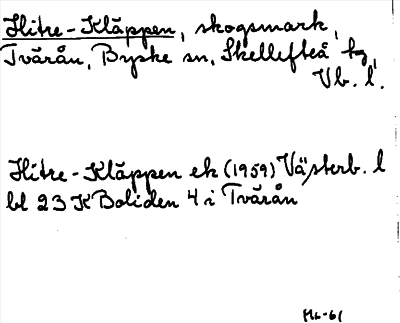 Hitre-Kläppen, skogsmark,
Tvärån, Byske sn, Skellefteå kg,
Vb. l.
Hitre-Kläppen ek (1959) Västerb. l
bl 23 K Boliden 4 i Tvärån